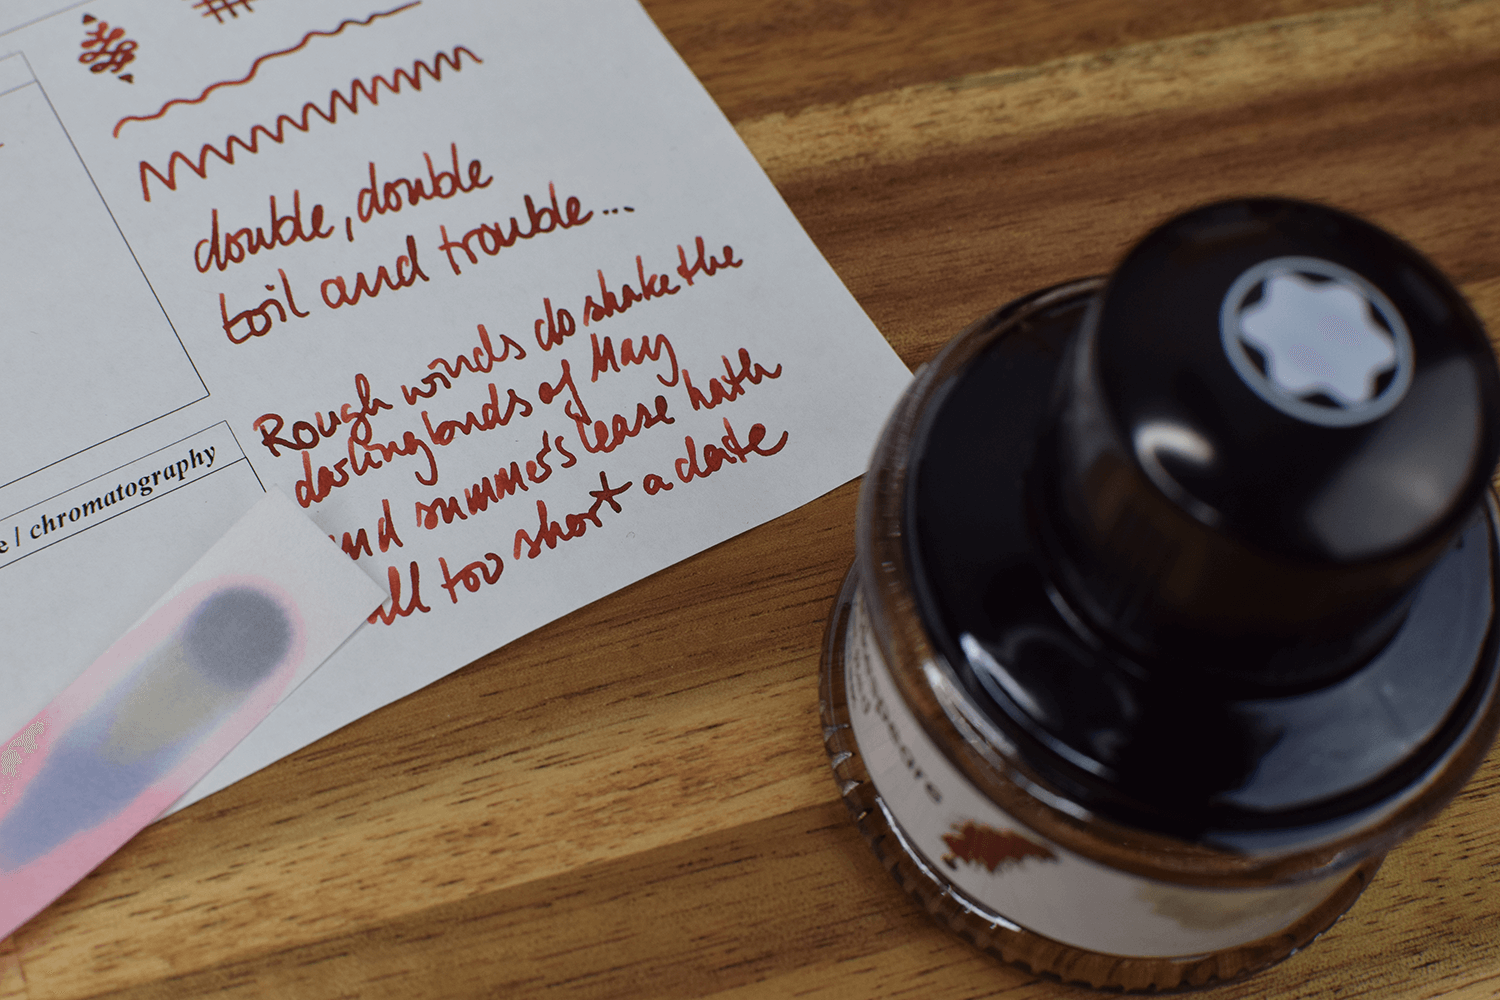 double, double
toil and trouble...
Rough winds do shake the
darling buds of May
and summer's lease hath
all too short a date
e / chromatography